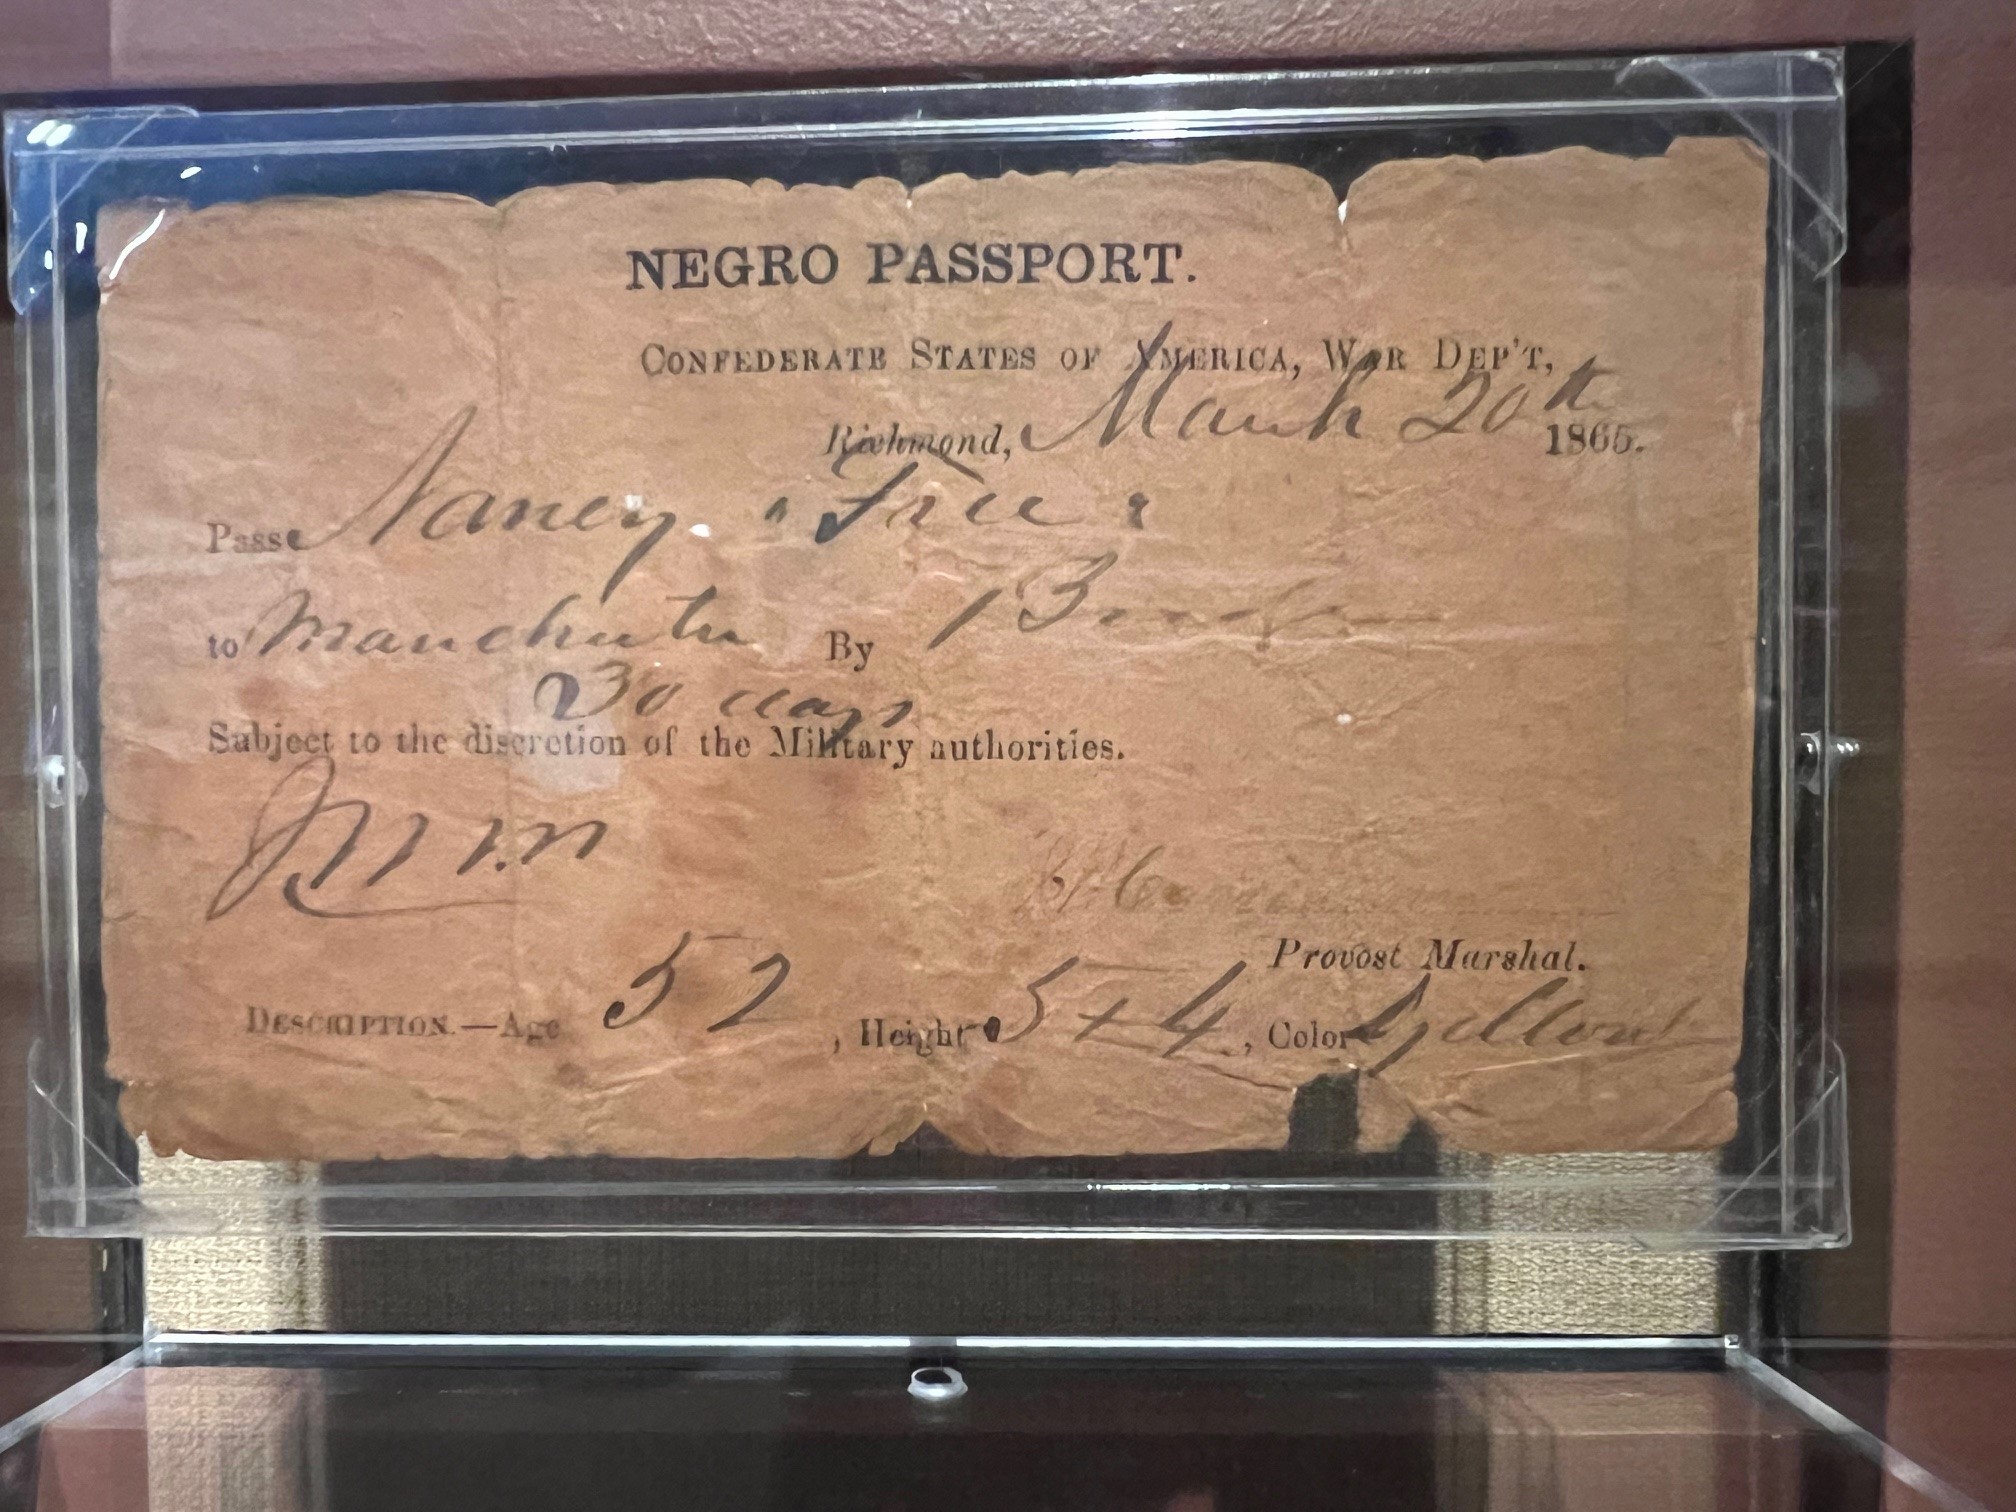 NEGRO PASSPORT.
CONFEDERATE STATES OF AMERICA, WAR DEP'T,
Richmond, March 20th 1865.
Pass Nancy "Free"
to Manchester By
30 days
Subject to the discretion of the Military authorities.
Provost Marshal.
DESCRIPTION.—Age 52, Height 5 + 4, Color Yellow